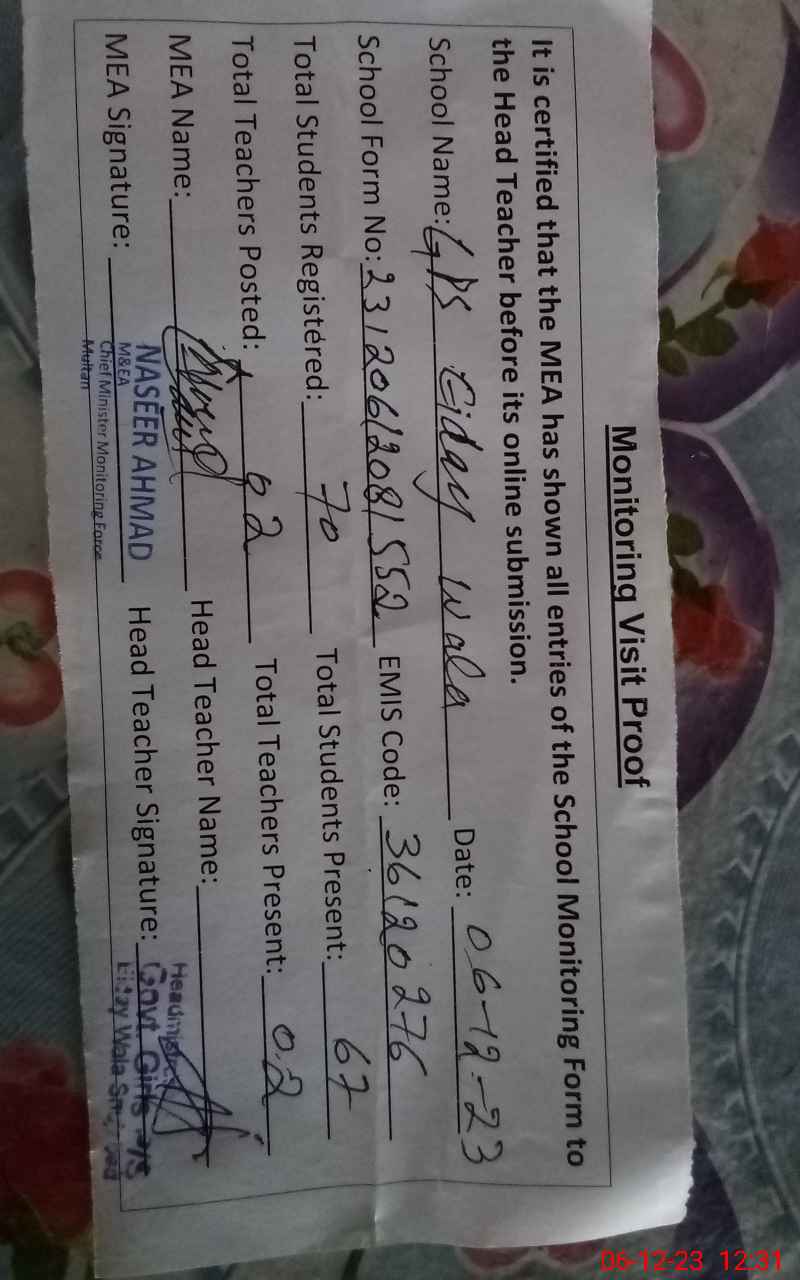 Monitoring Visit Proof
It is certified that the MEA has shown all entries of the School Monitoring Form to
the Head Teacher before its online submission.
School Name: GPS Giday Wala Date: 06-12-23
School Form No: 23120612081552 EMIS Code: 36120276
Total Students Registered: 70 Total Students Present: 67
Total Teachers Posted: 02 Total Teachers Present: 02
MEA Name: Head Teacher Name:
MEA Signature: NASEER AHMAD Head Teacher Signature: Govt Girls
M&EA Wala
Chief Minister Monitoring Force
Multan
06-12-23 12:31